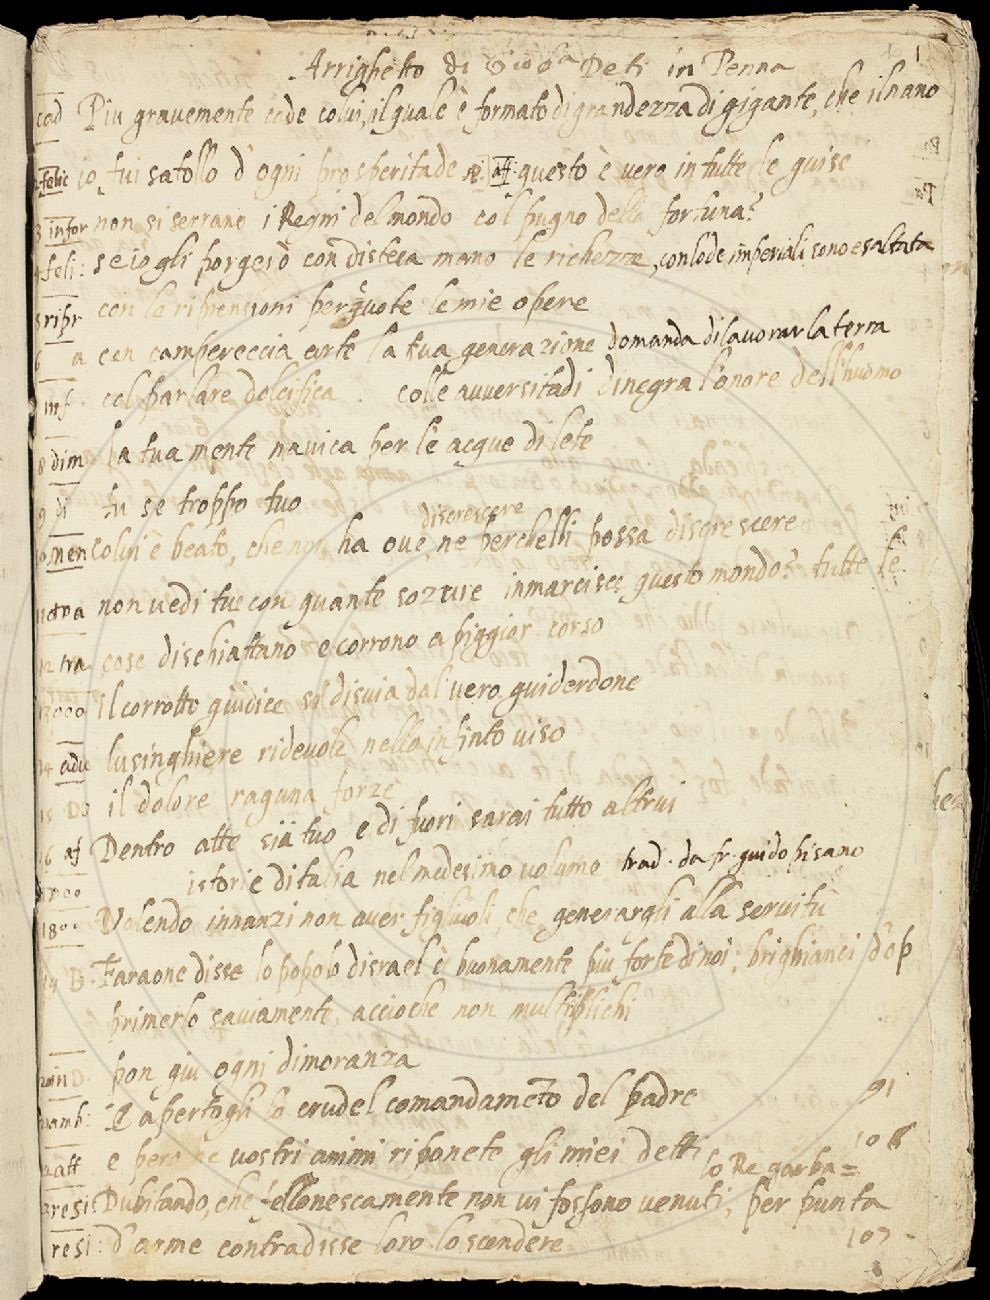 1
Arrighetto di Gio: Ba Deti in Penna
cad Piu grauemente cade colui, il quale è formato di grandezza di gigante, che il nano
felic io fui satollo d'ogni prosperitade att. questo è vero in tutte le guise
3 infor non si serrano i Regni del mondo col pugno della fortuna?
4 feli: se io gli porgerò con distesa mano le richezze, con lode imperiali sono esaltata
5 ripr con le riprensioni perquote le mie opere
6 a con campereccia arte la tua generazione domanda di lauorar la terra
inf. col parlare dolcifica. colle auuersitadi dinegra l'onore dell'huomo
8 dim la tua mente nauica per le acque di lete
9 di tu se troppo tuo
discrescere
men colui è beato, che non ha oue, ne perchelli possa discrescere
11 non uedi tue con quante sozure inmarcisce questo mondo? tutte le
12 tra cose dischiattano e corrono a piggior corso
13 000 il corrotto giudice si disuia dal vero guiderdone
14 adu lusinghiere rideuole nella infinto viso
15 Do il dolore raguna forze
16 af Dentro atte sia tuo e di fuori sarai tutto altrui
istorie ditalia nel medesimo volume trad. da fr. guido pisano
18 Volendo innanzi non auer figliuoli, che generargli alla seruitù
19 D. Faraone disse lo popolo disrael è buonamente piu forte di noi; brighianci d'op
primerlo sauiamente, accioche non multiplichi
in D. pon giu ogni dimoranza
amb: E apertogli lo crudel comandameto del padre 91
att e pero ne vostri animi riponete gli miei detti 108
lo Re garba=
resis Dubitando, che fellonescamente non ui fossono venuti, per punta
resi: d'arme contradisse loro lo scendere 107